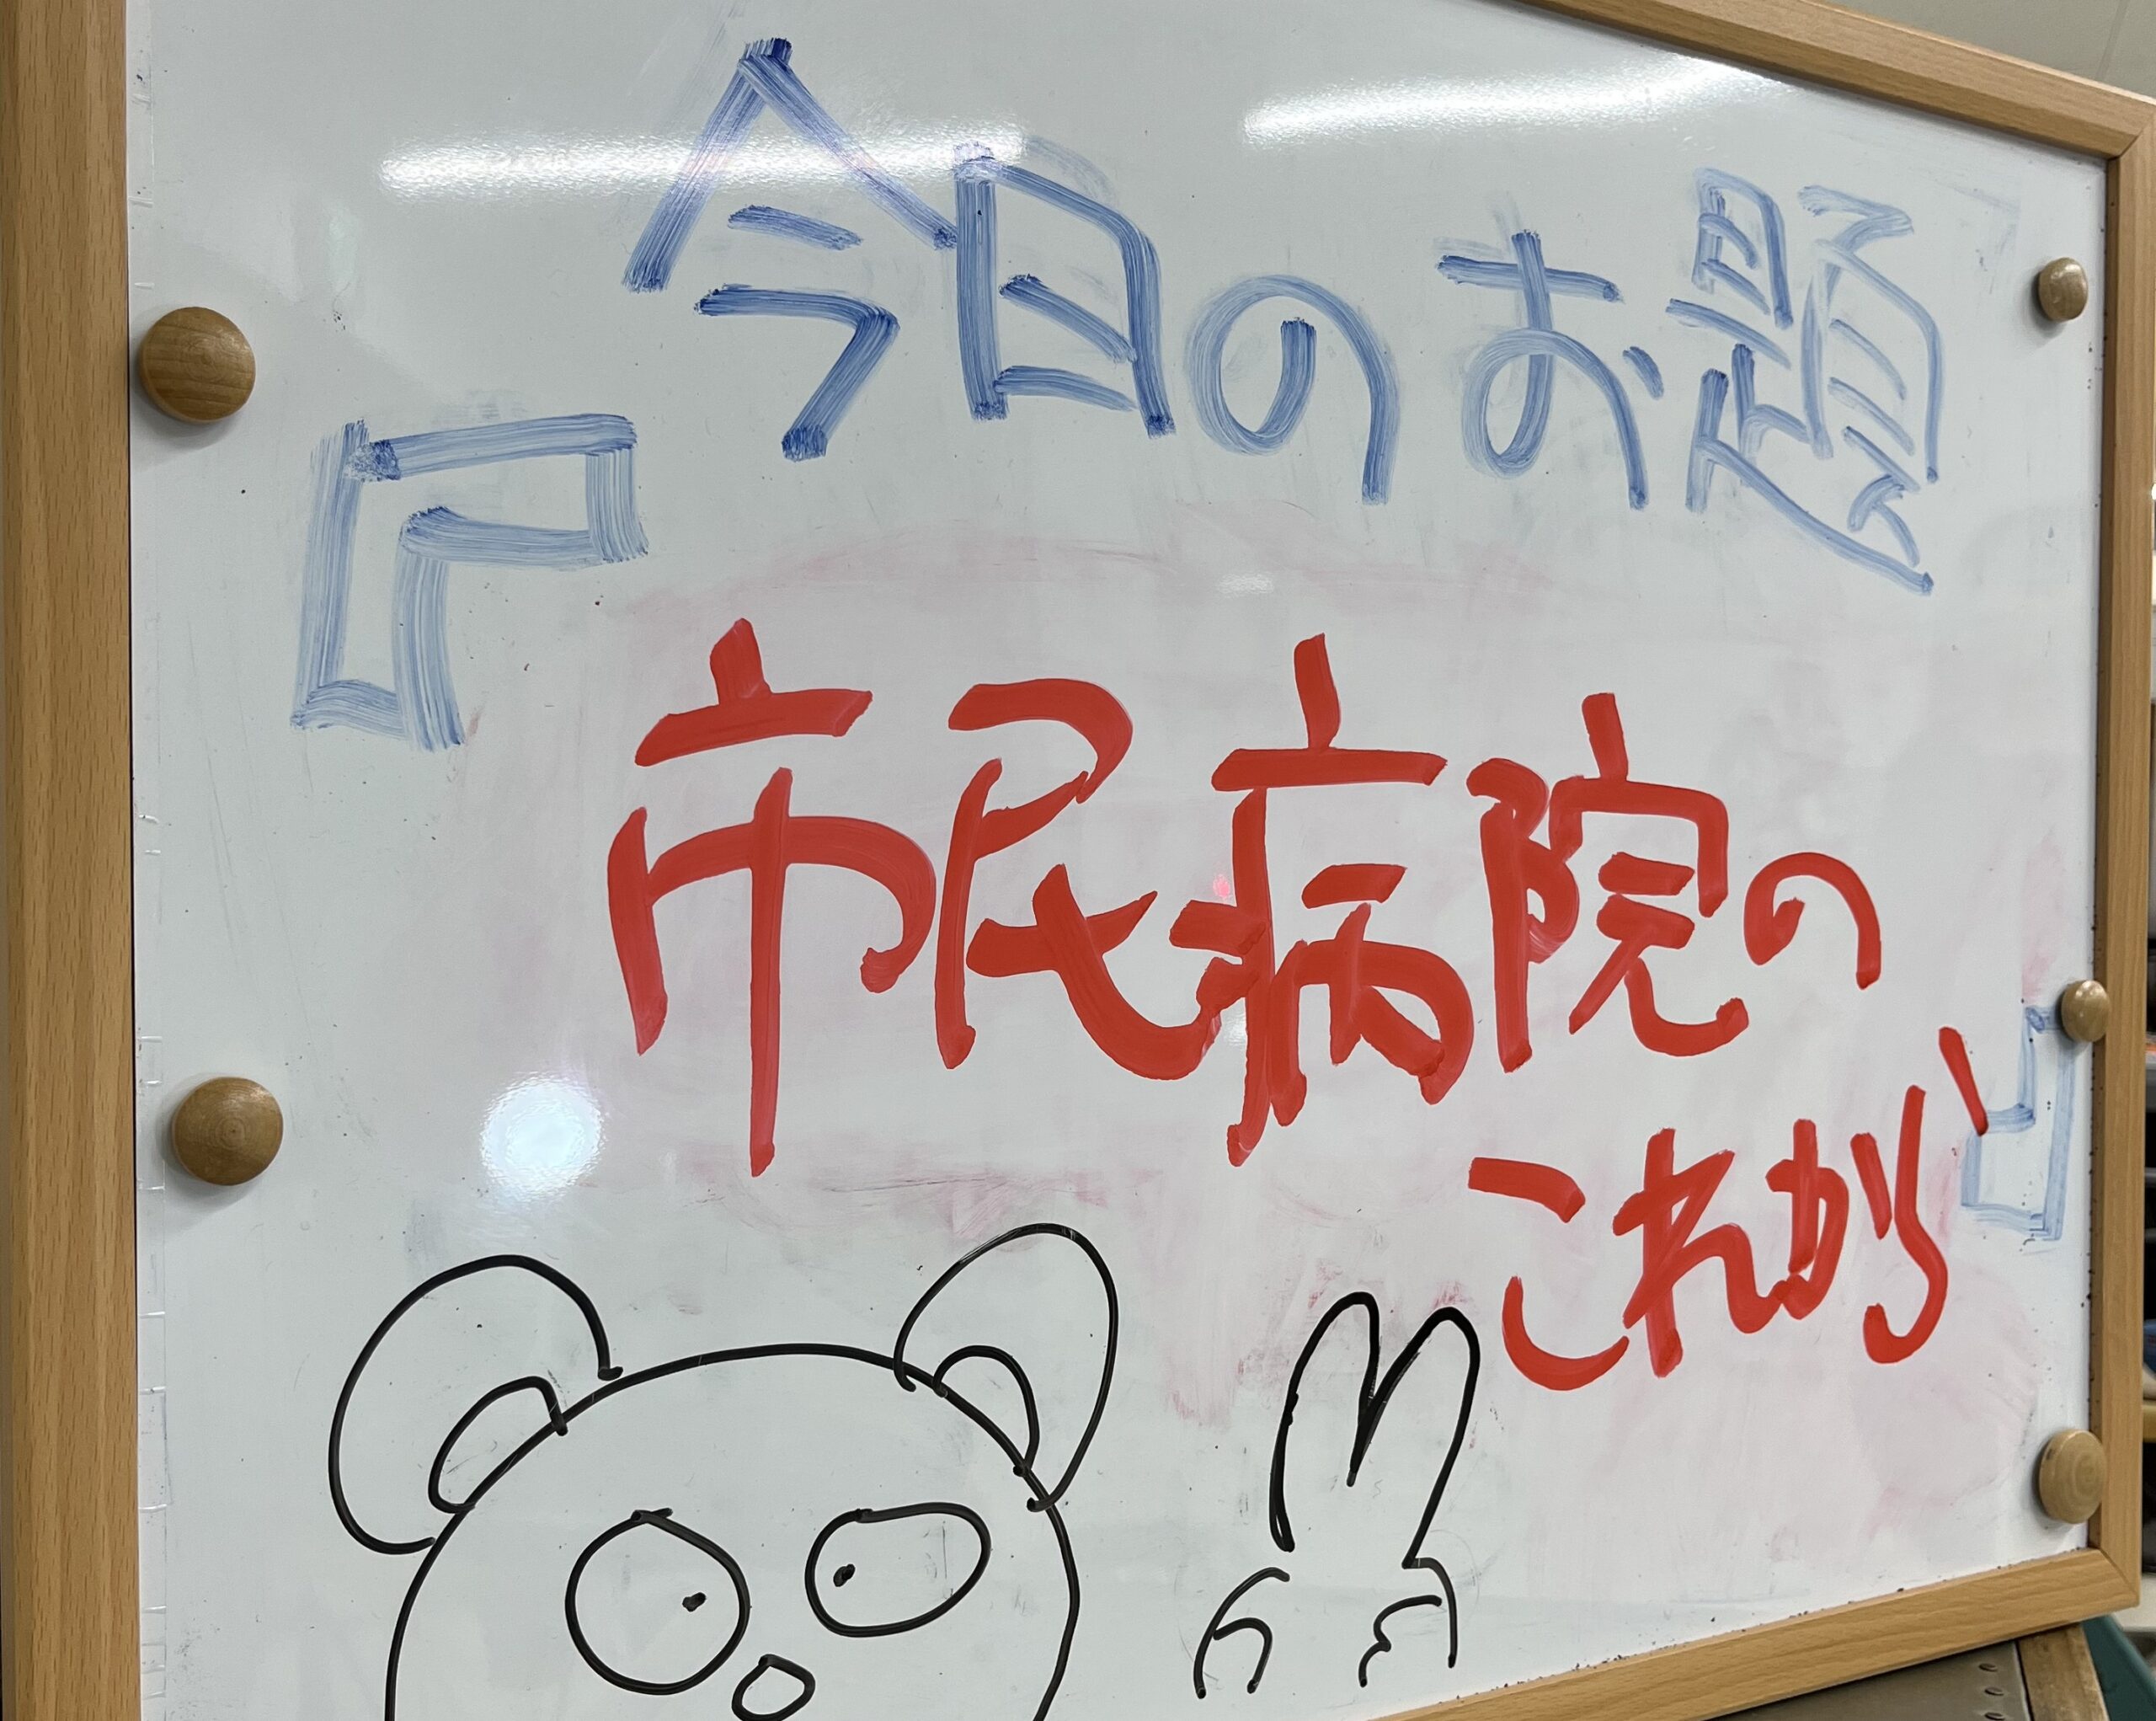 今日のお題
『市民病院の
これから』